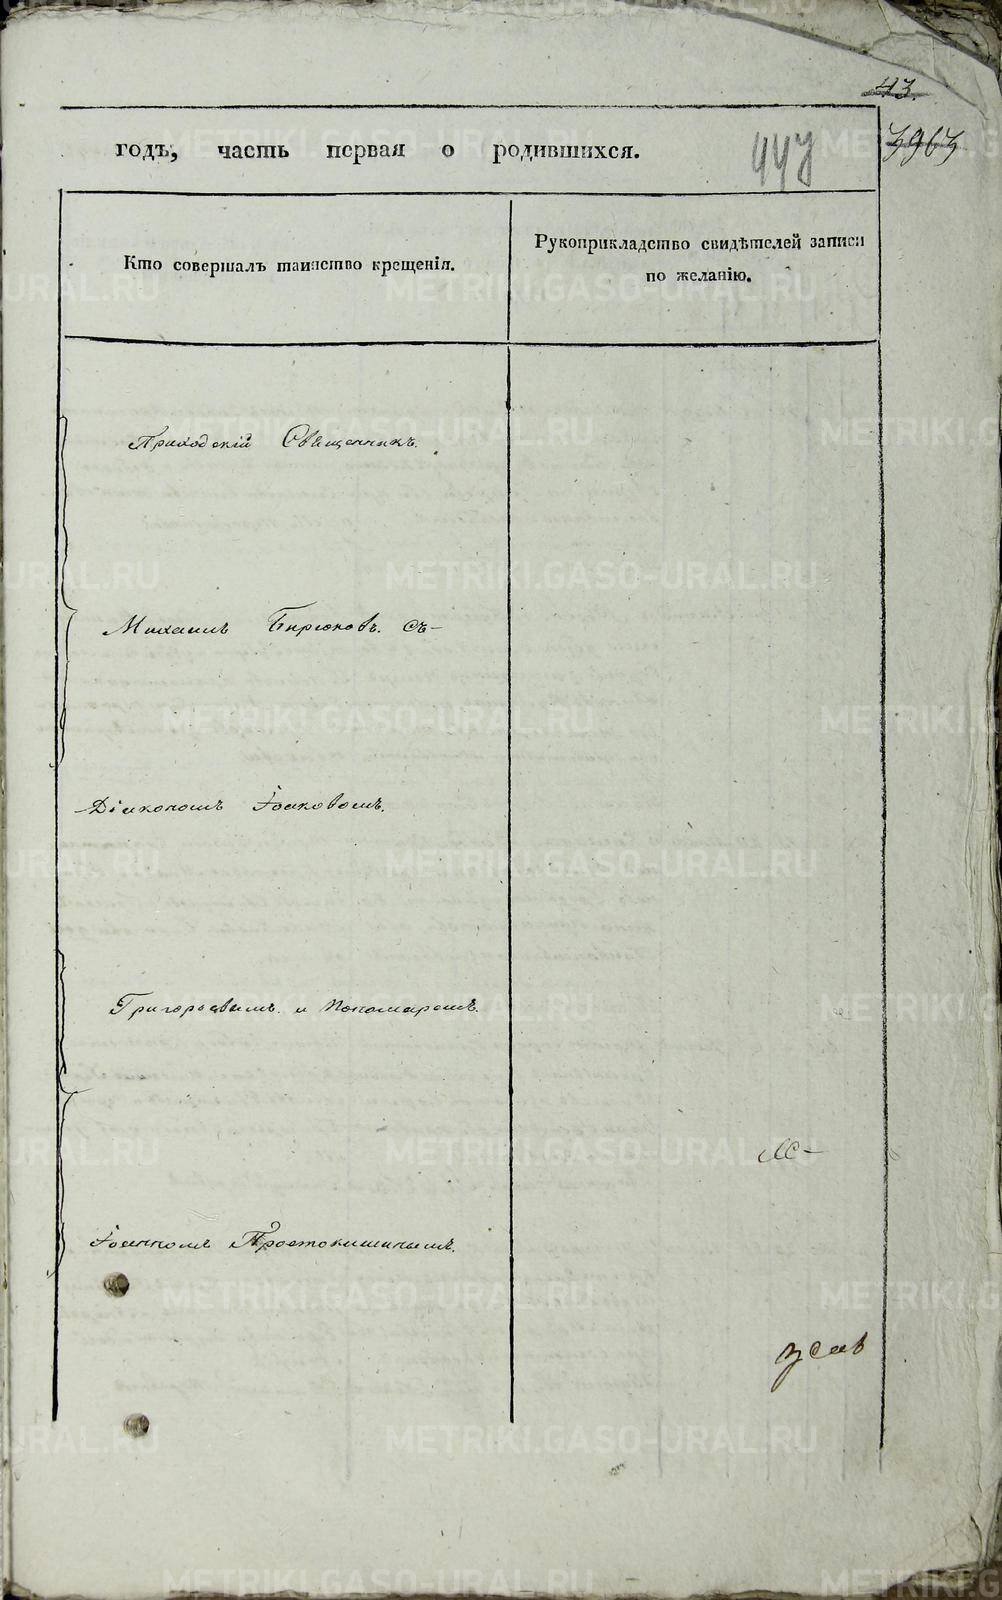 43.
3963
годъ, часть первая о родившихся.
447
Кто совершалъ таинство крещенія.
Рукоприкладство свидѣтелей записи
по желанію.
Приходскій Священникъ.
Михаилъ Бирюковъ. съ-
Діакономъ Іаковомъ.
Григорьевымъ. и Пономаремъ.
Іоанномъ Простокишинымъ.
METRIKI.GASO-URAL.RU